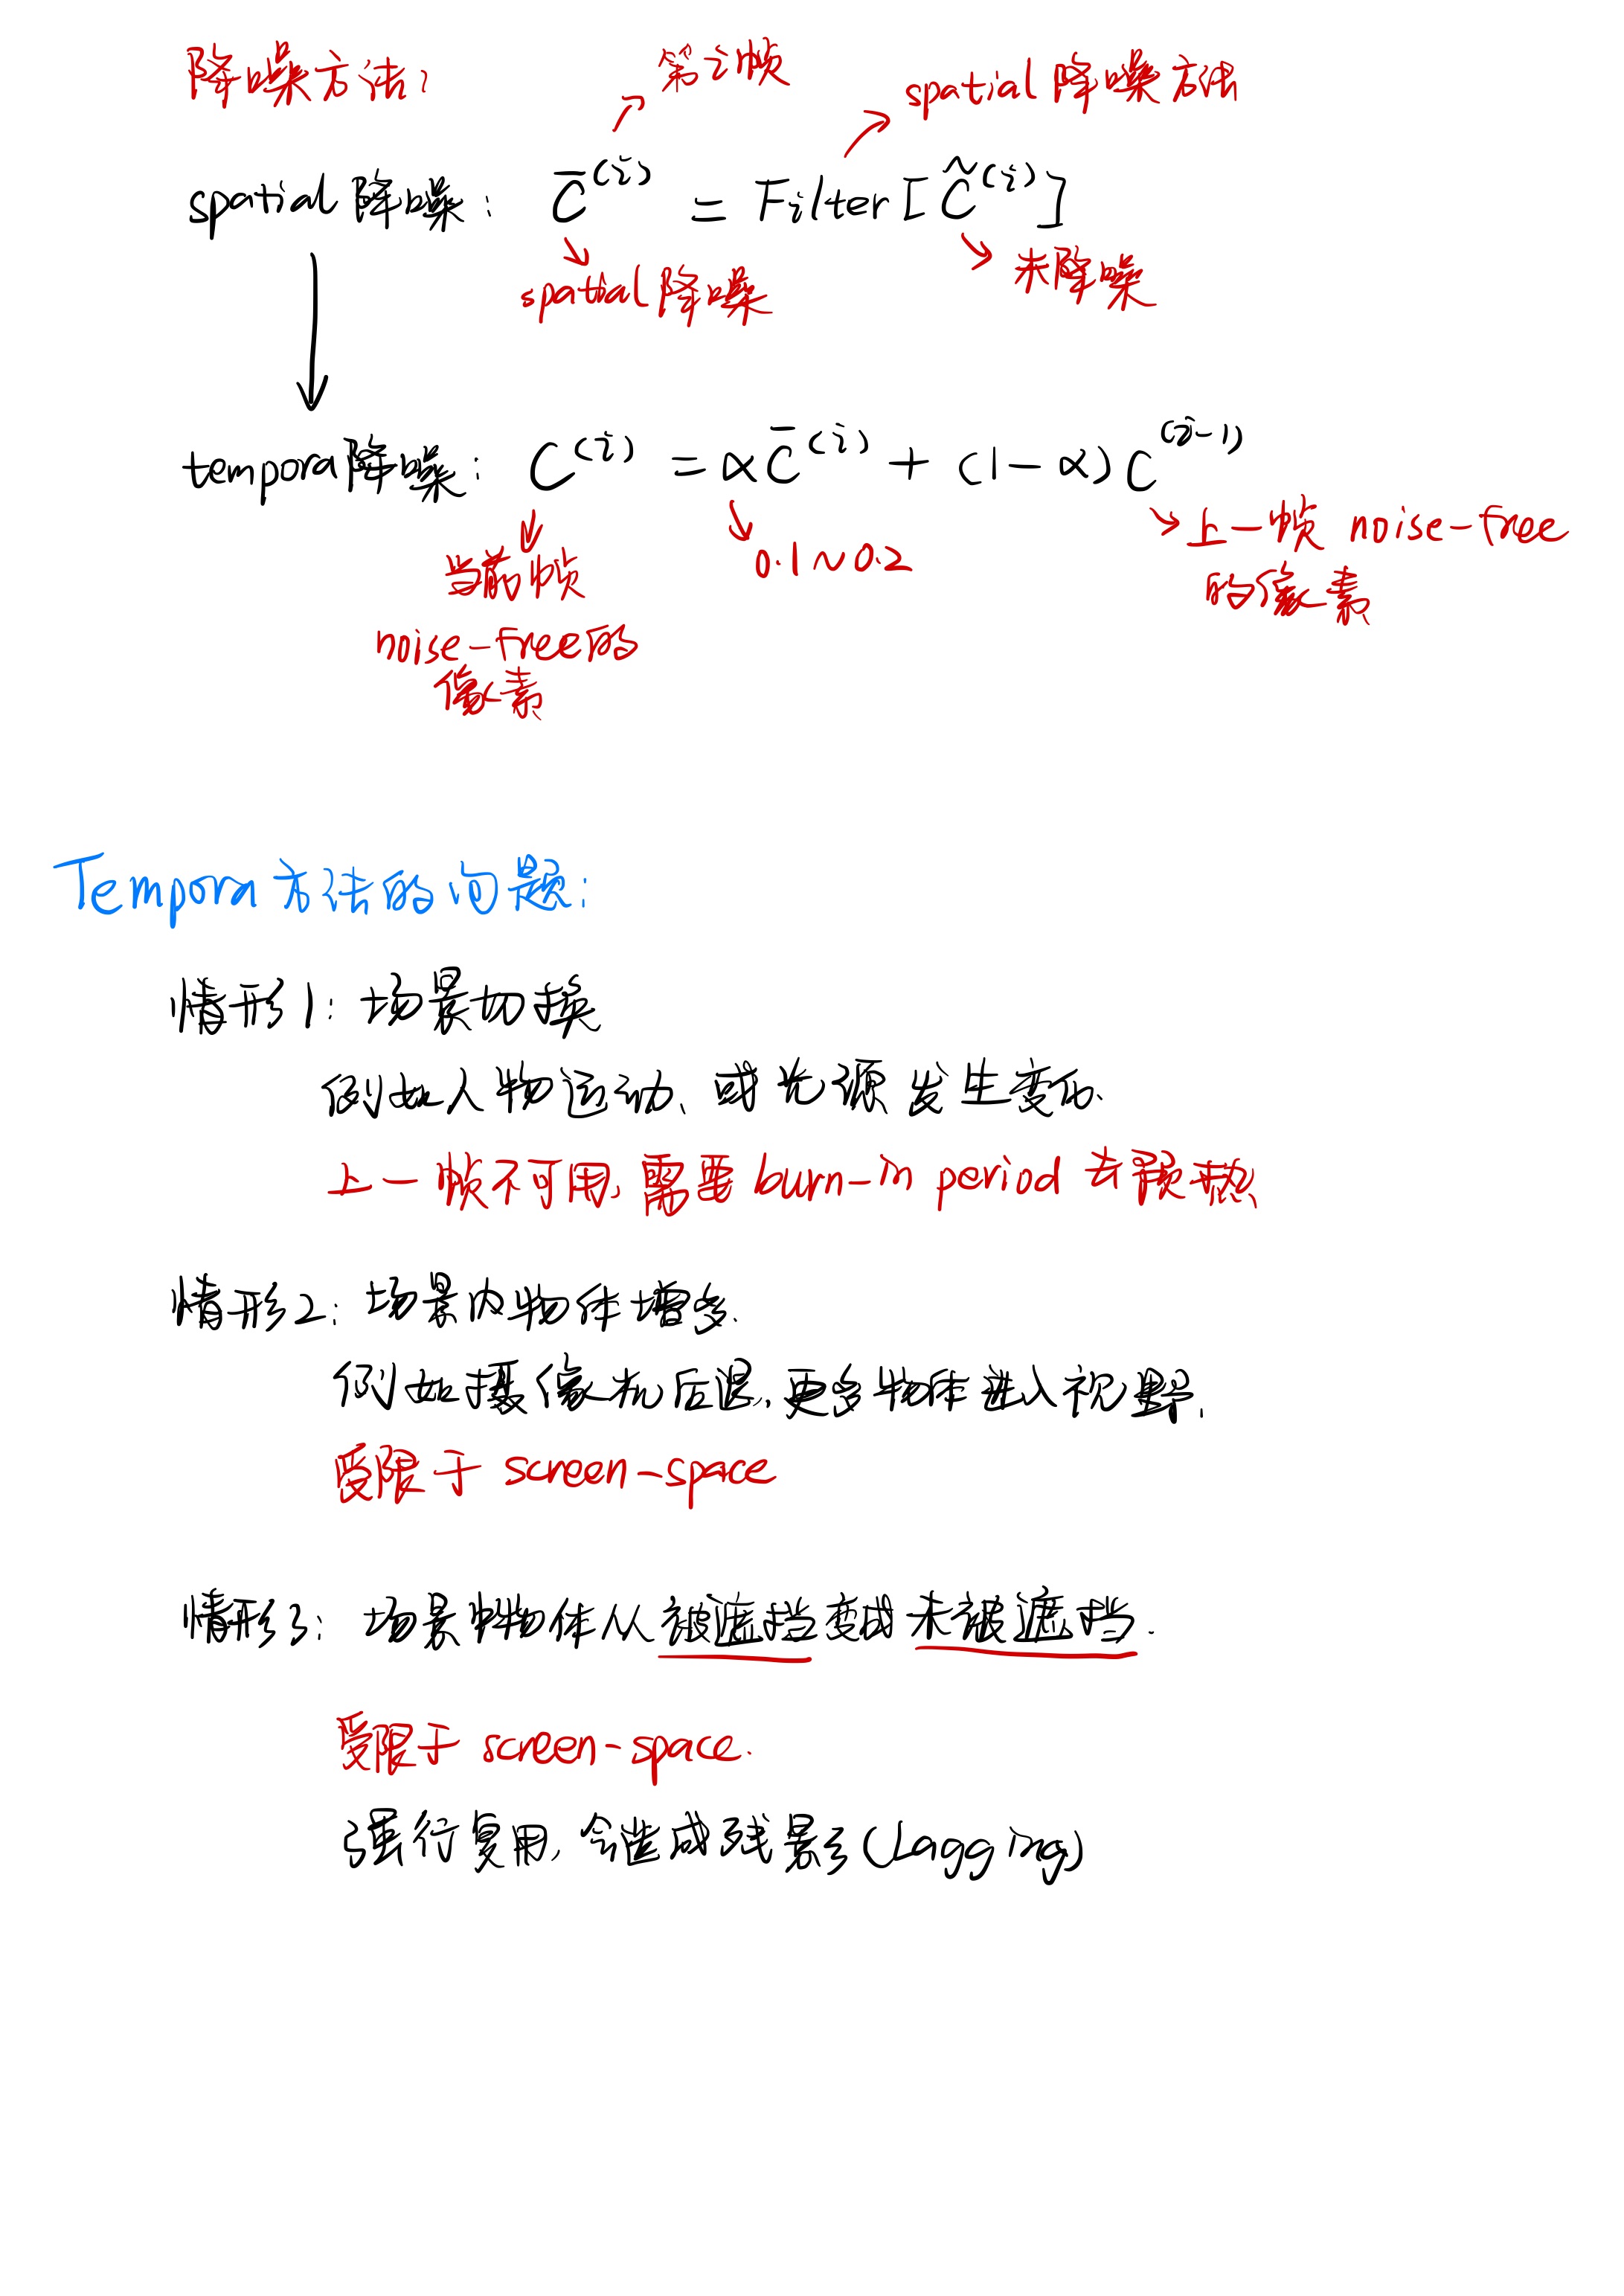 降噪方法:
第i帧
spatial降噪方法
spatial降噪: C̄⁽ⁱ⁾ = Filter[C̃⁽ⁱ⁾]
spatial降噪
未降噪
tempora降噪: C⁽ⁱ⁾ = αC̄⁽ⁱ⁾ + (1-α)C⁽ⁱ⁻¹⁾
当前帧
noise-free的
像素
0.1~0.2
上一帧 noise-free
的像素
Tempora方法的问题:
情形1: 场景切换
例如人物运动、或光源发生变化.
上一帧不可用, 需要burn-in period去预热
情形2: 场景内物体增多.
例如摄像机后退, 更多物体进入视野.
受限于 screen-space
情形3: 场景中物体从被遮挡变成未被遮挡.
受限于 screen-space.
强行复用, 会造成残影(Lagging)